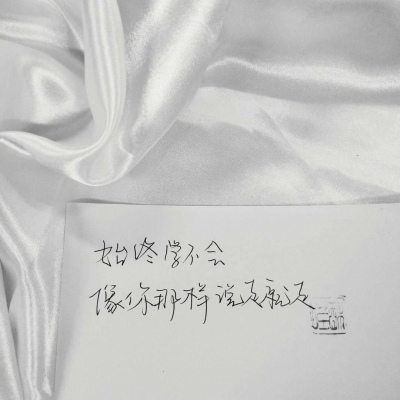 始终学不会
像你那样说走就走